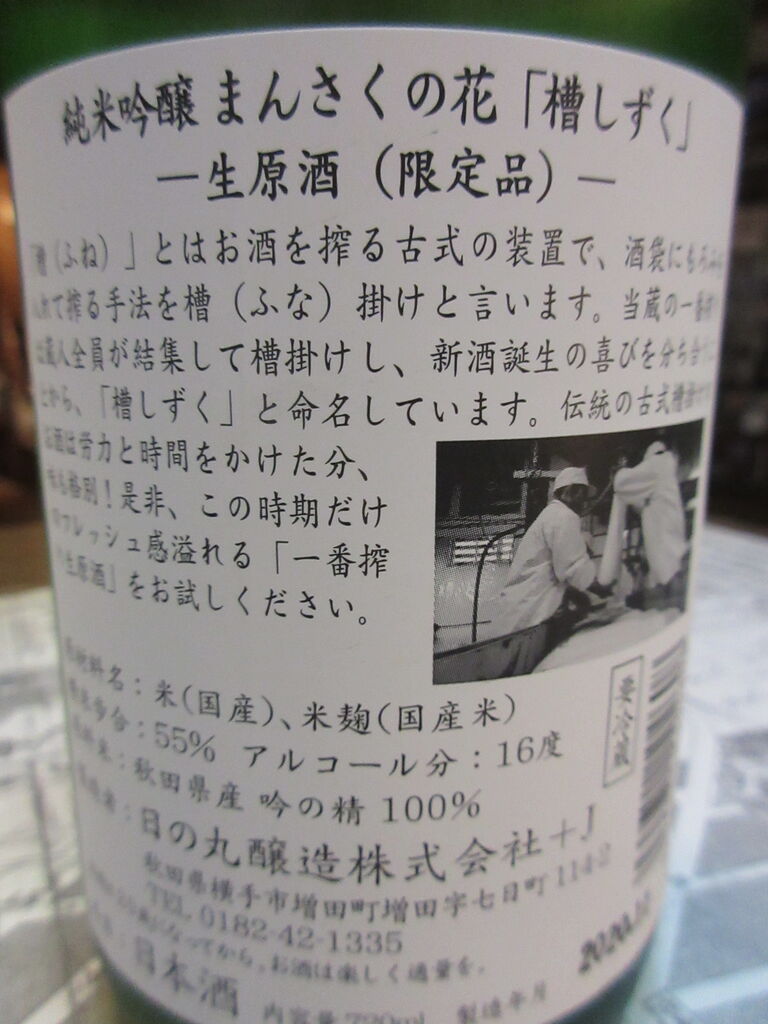 純米吟醸 まんさくの花「槽しずく」
―生原酒(限定品)―
(ふね)」とはお酒を搾る古式の装置で、酒袋にもろみ
て搾る手法を槽(ふな)掛けと言います。当蔵の一番
蔵人全員が結集して槽掛けし、新酒誕生の喜びを分ち合
から、「槽しずく」と命名しています。伝統の古式槽
お酒は労力と時間をかけた分、
味も格別!是非、この時期だけ
のフレッシュ感溢れる「一番搾
生原酒」をお試しください。
材料名:米(国産)、米麹(国産米)
歩合:55% アルコール分:16度
要冷蔵
米:秋田県産 吟の精 100%
者:日の丸醸造株式会社+J
秋田県横手市増田町増田字七日町114-2
TEL 0182-42-1335
になってから。お酒は楽しく適量を。
日本酒 内容量720ml 製造年月
2020.12